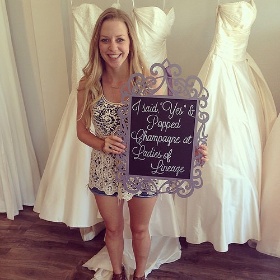 I said "Yes" &
Popped
Champagne at
Ladies of
Lineage